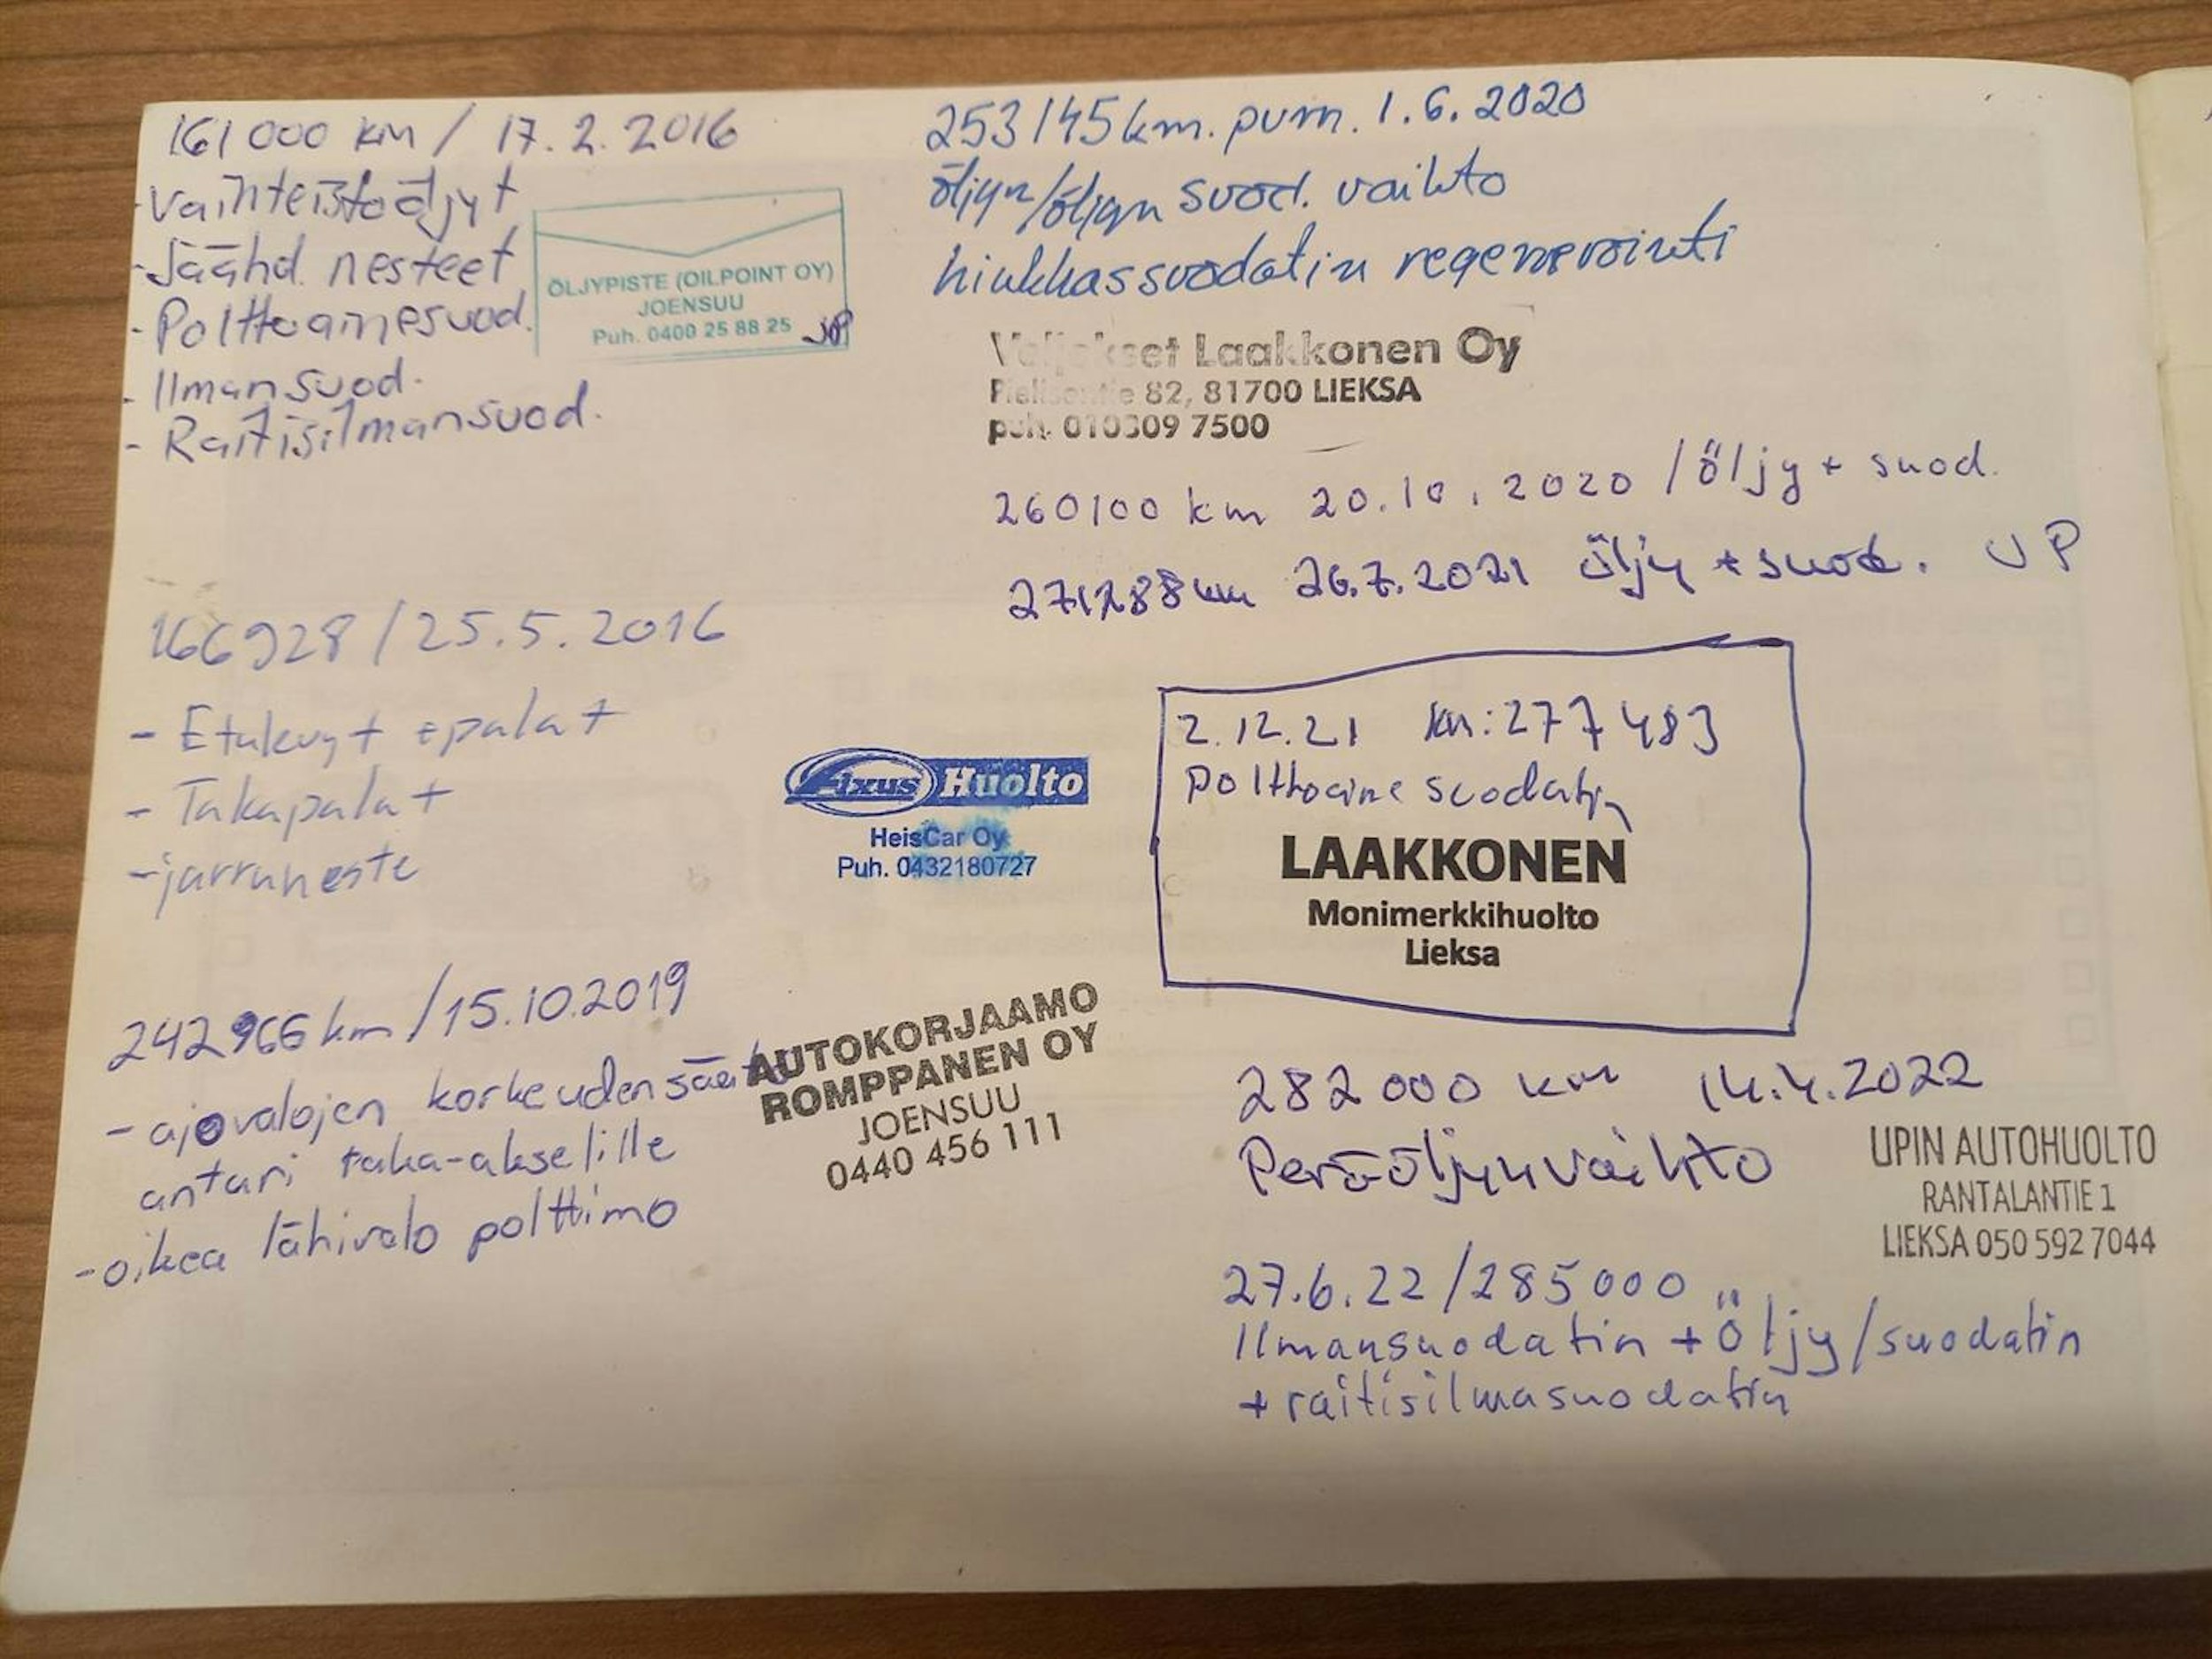 161 000 km / 17.2.2016
- Vaihteistoöljyt
- Jäähd. nesteet
- Polttoainesuod.
- Ilmansuod.
- Raitisilmansuod.
ÖLJYPISTE (OILPOINT OY)
JOENSUU
Puh. 0400 25 88 25
166928 / 25.5.2016
- Etulevyt + palat
- Takapalat
- jarruneste
Fixus Huolto
HeisCar Oy
Puh. 0432180727
242966 km / 15.10.2019
- ajovalojen korkeuden säätö
anturi taka-akselille
- oikea lähivalo polttimo
AUTOKORJAAMO
ROMPPANEN OY
JOENSUU
0440 456 111
253145 km. pvm. 1.6.2020
öljyn/öljyn suod. vaihto
hiukkassuodatin regenerointi
Veljekset Laakkonen Oy
Pielisentie 82, 81700 LIEKSA
puh. 010309 7500
260100 km 20.10.2020 / öljy + suod.
271288 km 26.7.2021 öljy + suod. UP
2.12.21 km: 277483
polttoaine suodatin
LAAKKONEN
Monimerkkihuolto
Lieksa
282 000 km 14.4.2022
Peräöljyn vaihto
UPIN AUTOHUOLTO
RANTALANTIE 1
LIEKSA 050 592 7044
27.6.22 / 285 000
Ilmansuodatin + Öljy/suodatin
+ raitisilmasuodatin